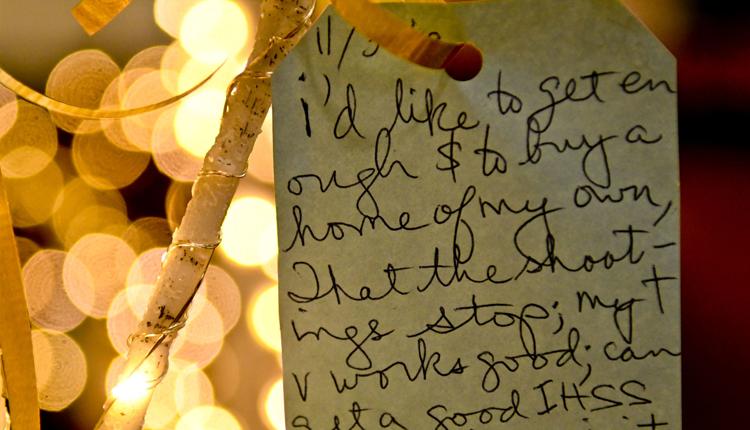 i'd like to get en
ough $ to buy a
home of my own,
That the shoot-
ings stop; my t
v works good; can
get a good IHSS